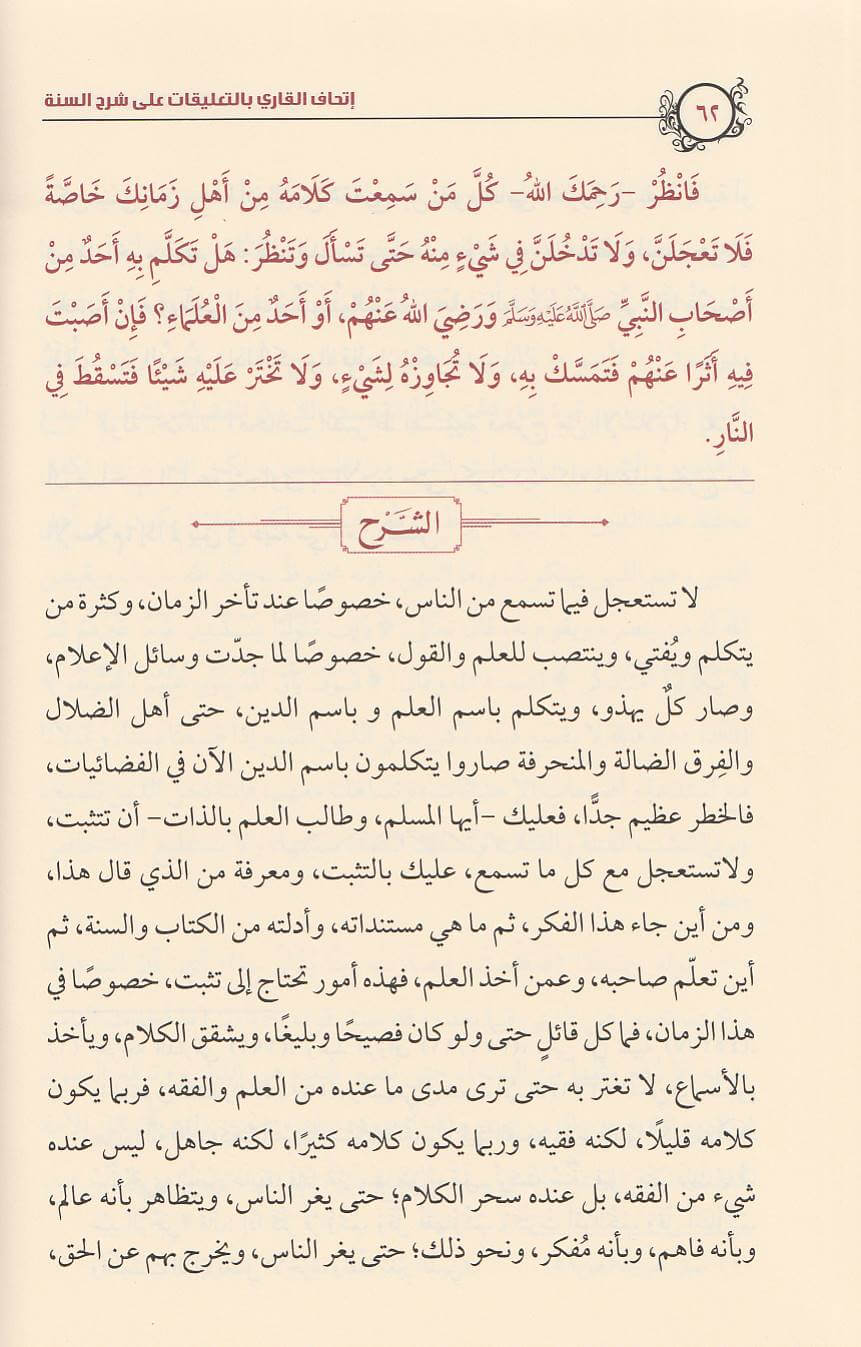 إتحاف القاري بالتعليقات على شرح السنة
٦٢
فَانْظُرْ -رَحِمَكَ اللهُ- كُلَّ مَنْ سَمِعْتَ كَلَامَهُ مِنْ أَهْلِ زَمَانِكَ خَاصَّةً
فَلَا تَعْجَلَنَّ، وَلَا تَدْخُلَنَّ فِي شَيْءٍ مِنْهُ حَتَّى تَسْأَلَ وَتَنْظُرَ: هَلْ تَكَلَّمِ بِهِ أَحَدٌ مِنْ
أَصْحَابِ النَّبِيِّ صَلَّى اللَّهُ عَلَيْهِ وَسَلَّمَ وَرَضِيَ اللهُ عَنْهُمْ، أَوْ أَحَدٌ مِنَ الْعُلَمَاءِ؟ فَإِنْ أَصَبْتَ
فِيهِ أَثَرًا عَنْهُمْ فَتَمَسَّكْ بِهِ، وَلَا تُجَاوِزْهُ لِشَيْءٍ، وَلَا تَخْتَرْ عَلَيْهِ شَيْئًا فَتَسْقُطَ فِي
النَّارِ.
الشَّرْح
لا تستعجل فيما تسمع من الناس، خصوصًا عند تأخر الزمان، وكثرة من
يتكلم ويُفتي، وينتصب للعلم والقول، خصوصًا لما جدّت وسائل الإعلام،
وصار كلٌ يهذو، ويتكلم باسم العلم و باسم الدين، حتى أهل الضلال
والفِرق الضالة والمنحرفة صاروا يتكلمون باسم الدين الآن في الفضائيات،
فالخطر عظيم جدًّا، فعليك -أيها المسلم، وطالب العلم بالذات- أن تتثبت،
ولاتستعجل مع كل ما تسمع، عليك بالتثبت، ومعرفة من الذي قال هذا،
ومن أين جاء هذا الفكر، ثم ما هي مستنداته، وأدلته من الكتاب والسنة، ثم
أين تعلّم صاحبه، وعمن أخذ العلم، فهذه أمور تحتاج إلى تثبت، خصوصًا في
هذا الزمان، فما كل قائلٍ حتى ولو كان فصيحًا وبليغًا، ويشقق الكلام، ويأخذ
بالأسماع، لا تغتر به حتى ترى مدى ما عنده من العلم والفقه، فربما يكون
كلامه قليلًا، لكنه فقيه، وربما يكون كلامه كثيرًا، لكنه جاهل، ليس عنده
شيء من الفقه، بل عنده سحر الكلام؛ حتى يغر الناس، ويتظاهر بأنه عالم،
وبأنه فاهم، وبأنه مُفكر، ونحو ذلك؛ حتى يغر الناس، ويخرج بهم عن الحق،